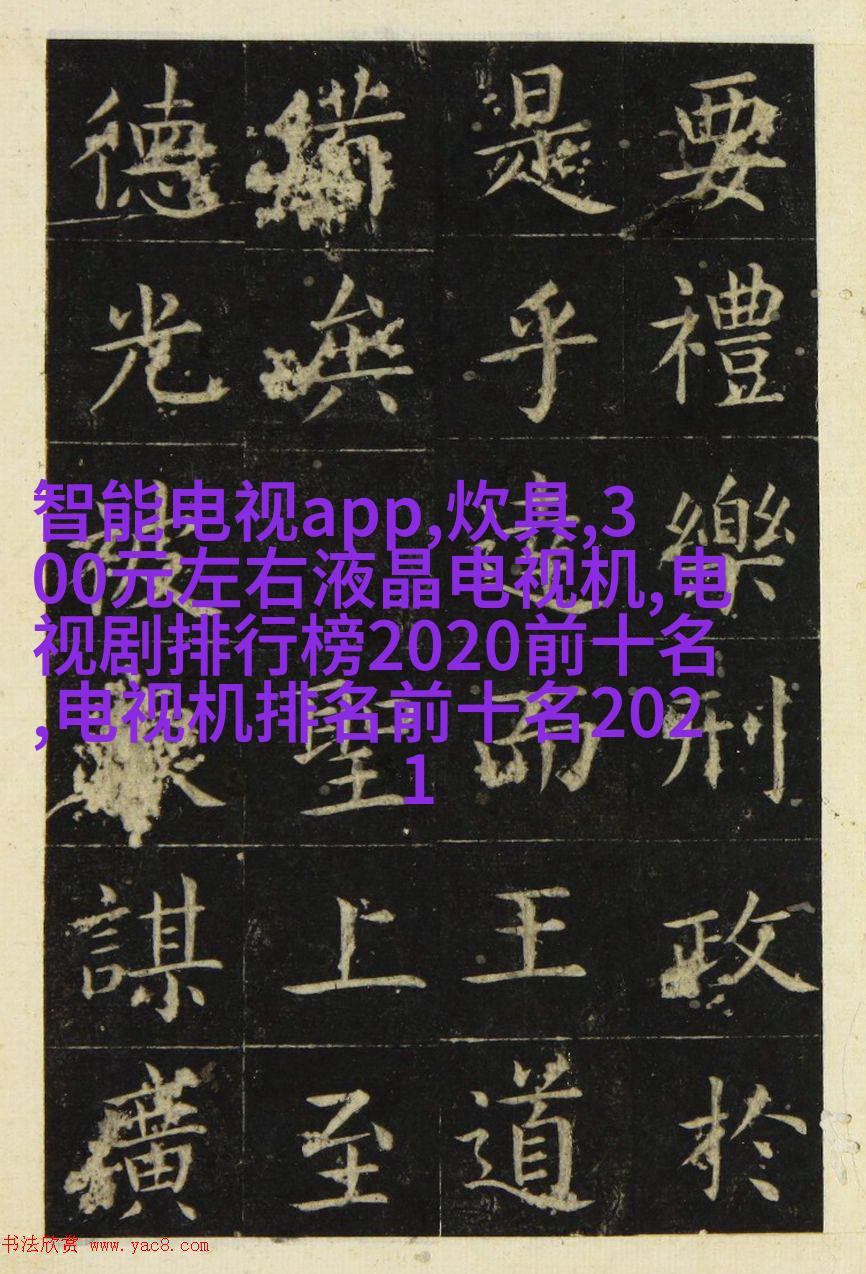 要禮樂刑政於
是乎而王道
無聖上至
德光謀廣
智能电视app,炊具,3
00元左右液晶电视机,电
视剧排行榜2020前十名
,电视机排名前十名202
1
书法欣赏 www.yac8.com